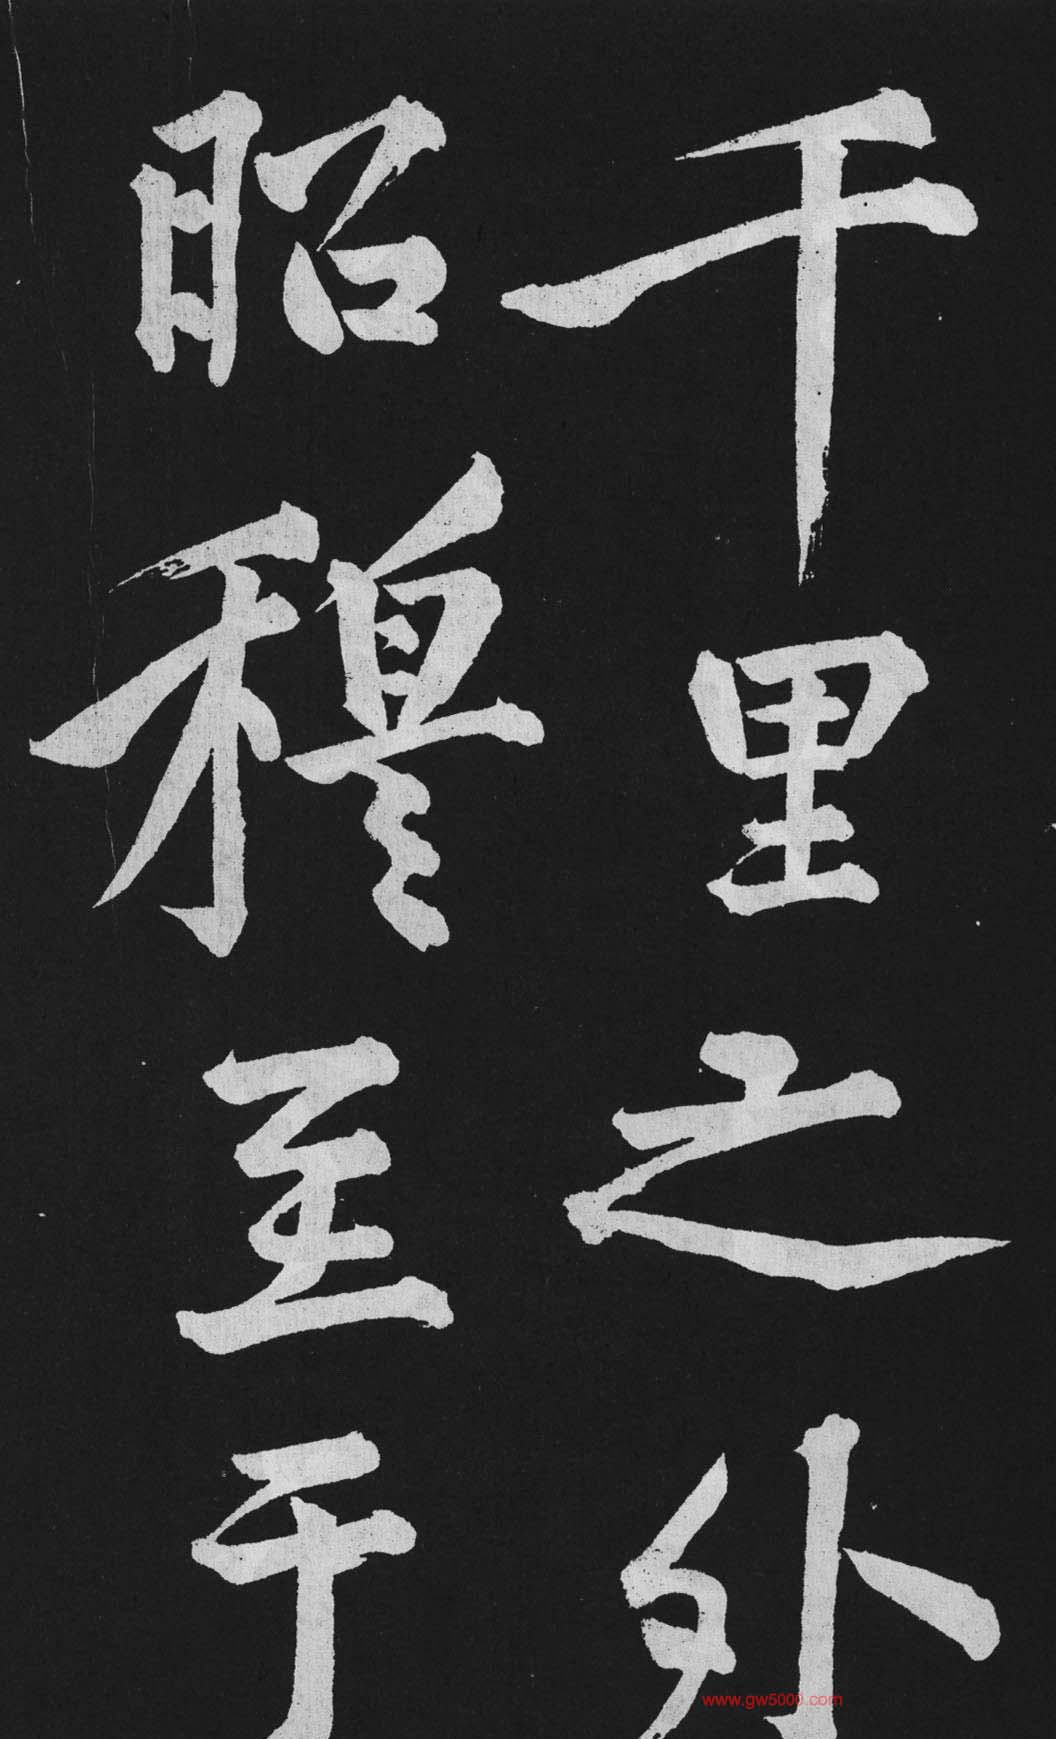 千里之外
昭穆至于
www.gw5000.com